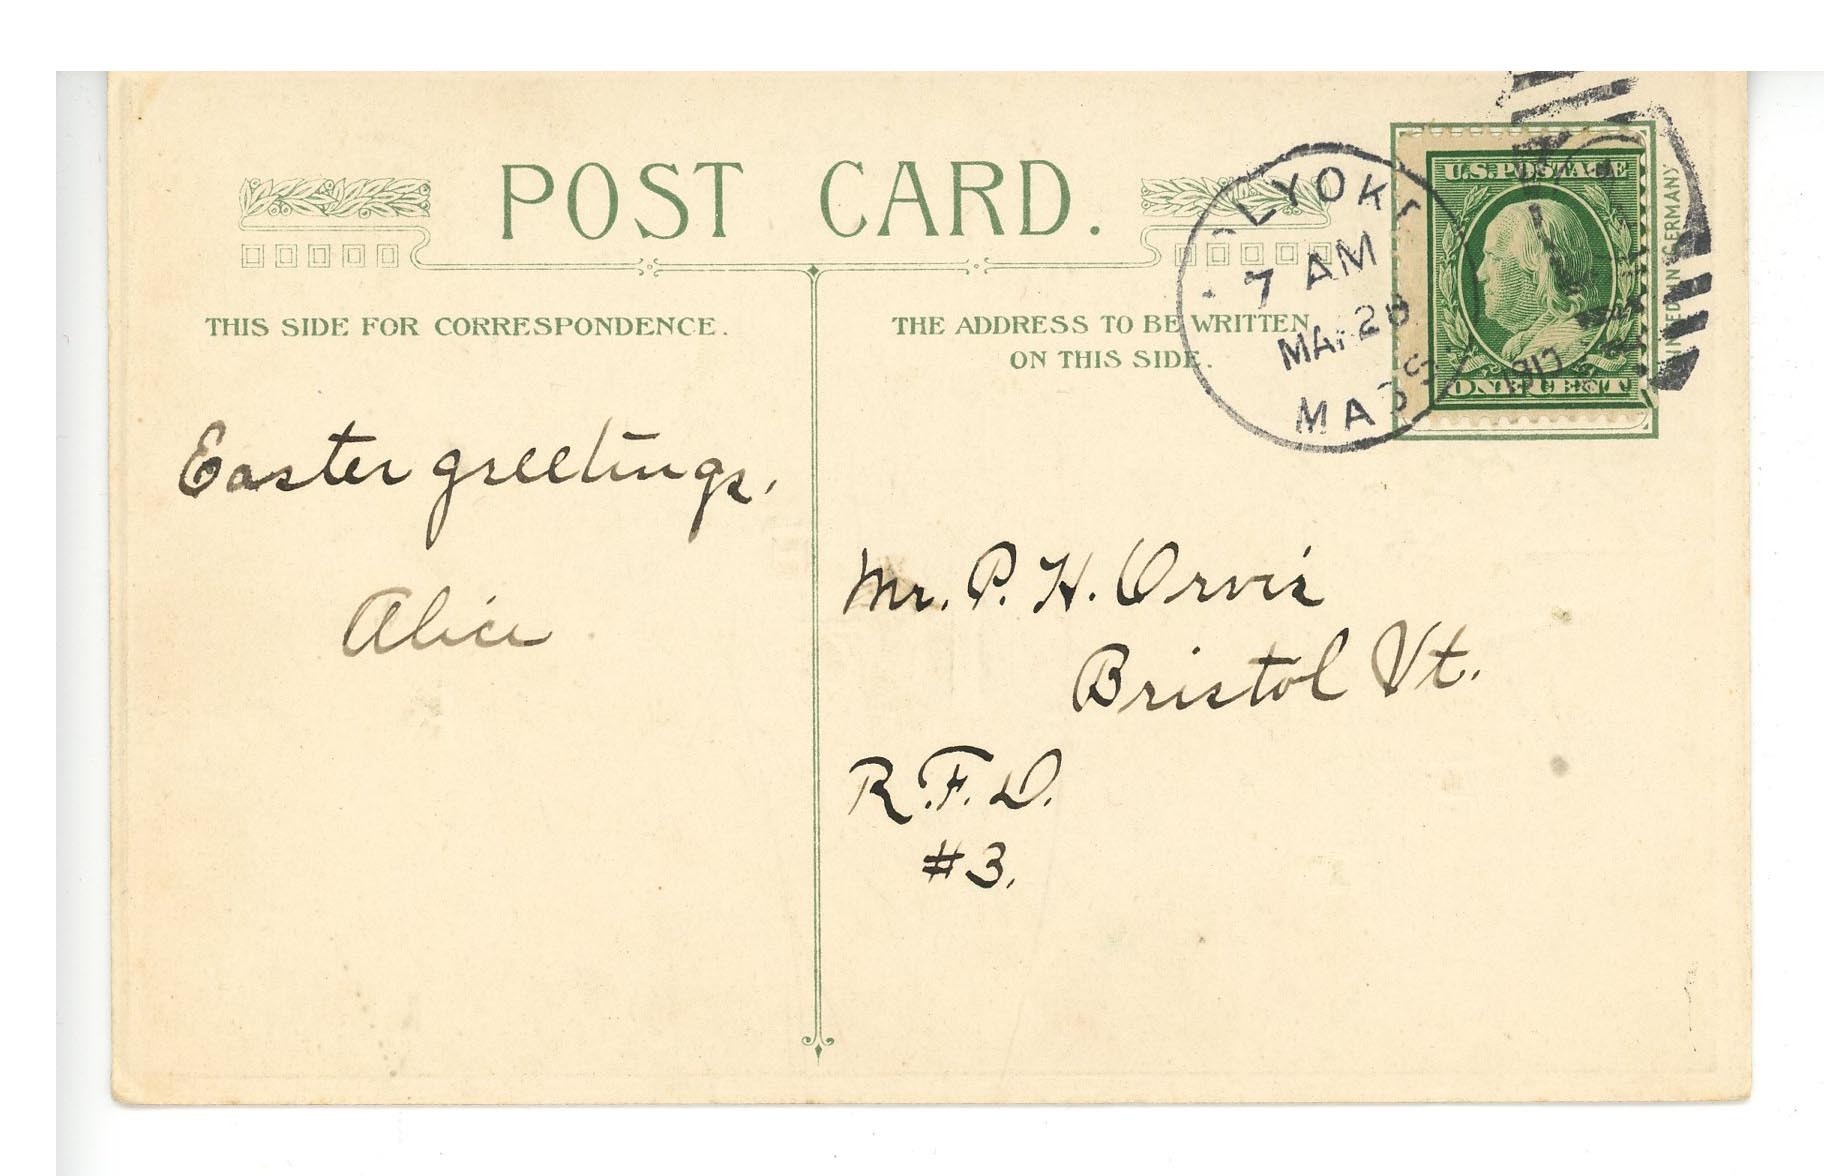 POST CARD.
THIS SIDE FOR CORRESPONDENCE.
THE ADDRESS TO BE WRITTEN
ON THIS SIDE.
LYOKE
7 AM
MASS
U.S. POSTAGE
ONE CENT
GERMANY
Easter greetings,
Alice
Mr. P. H. Orvis
Bristol Vt.
R.F.D.
#3.